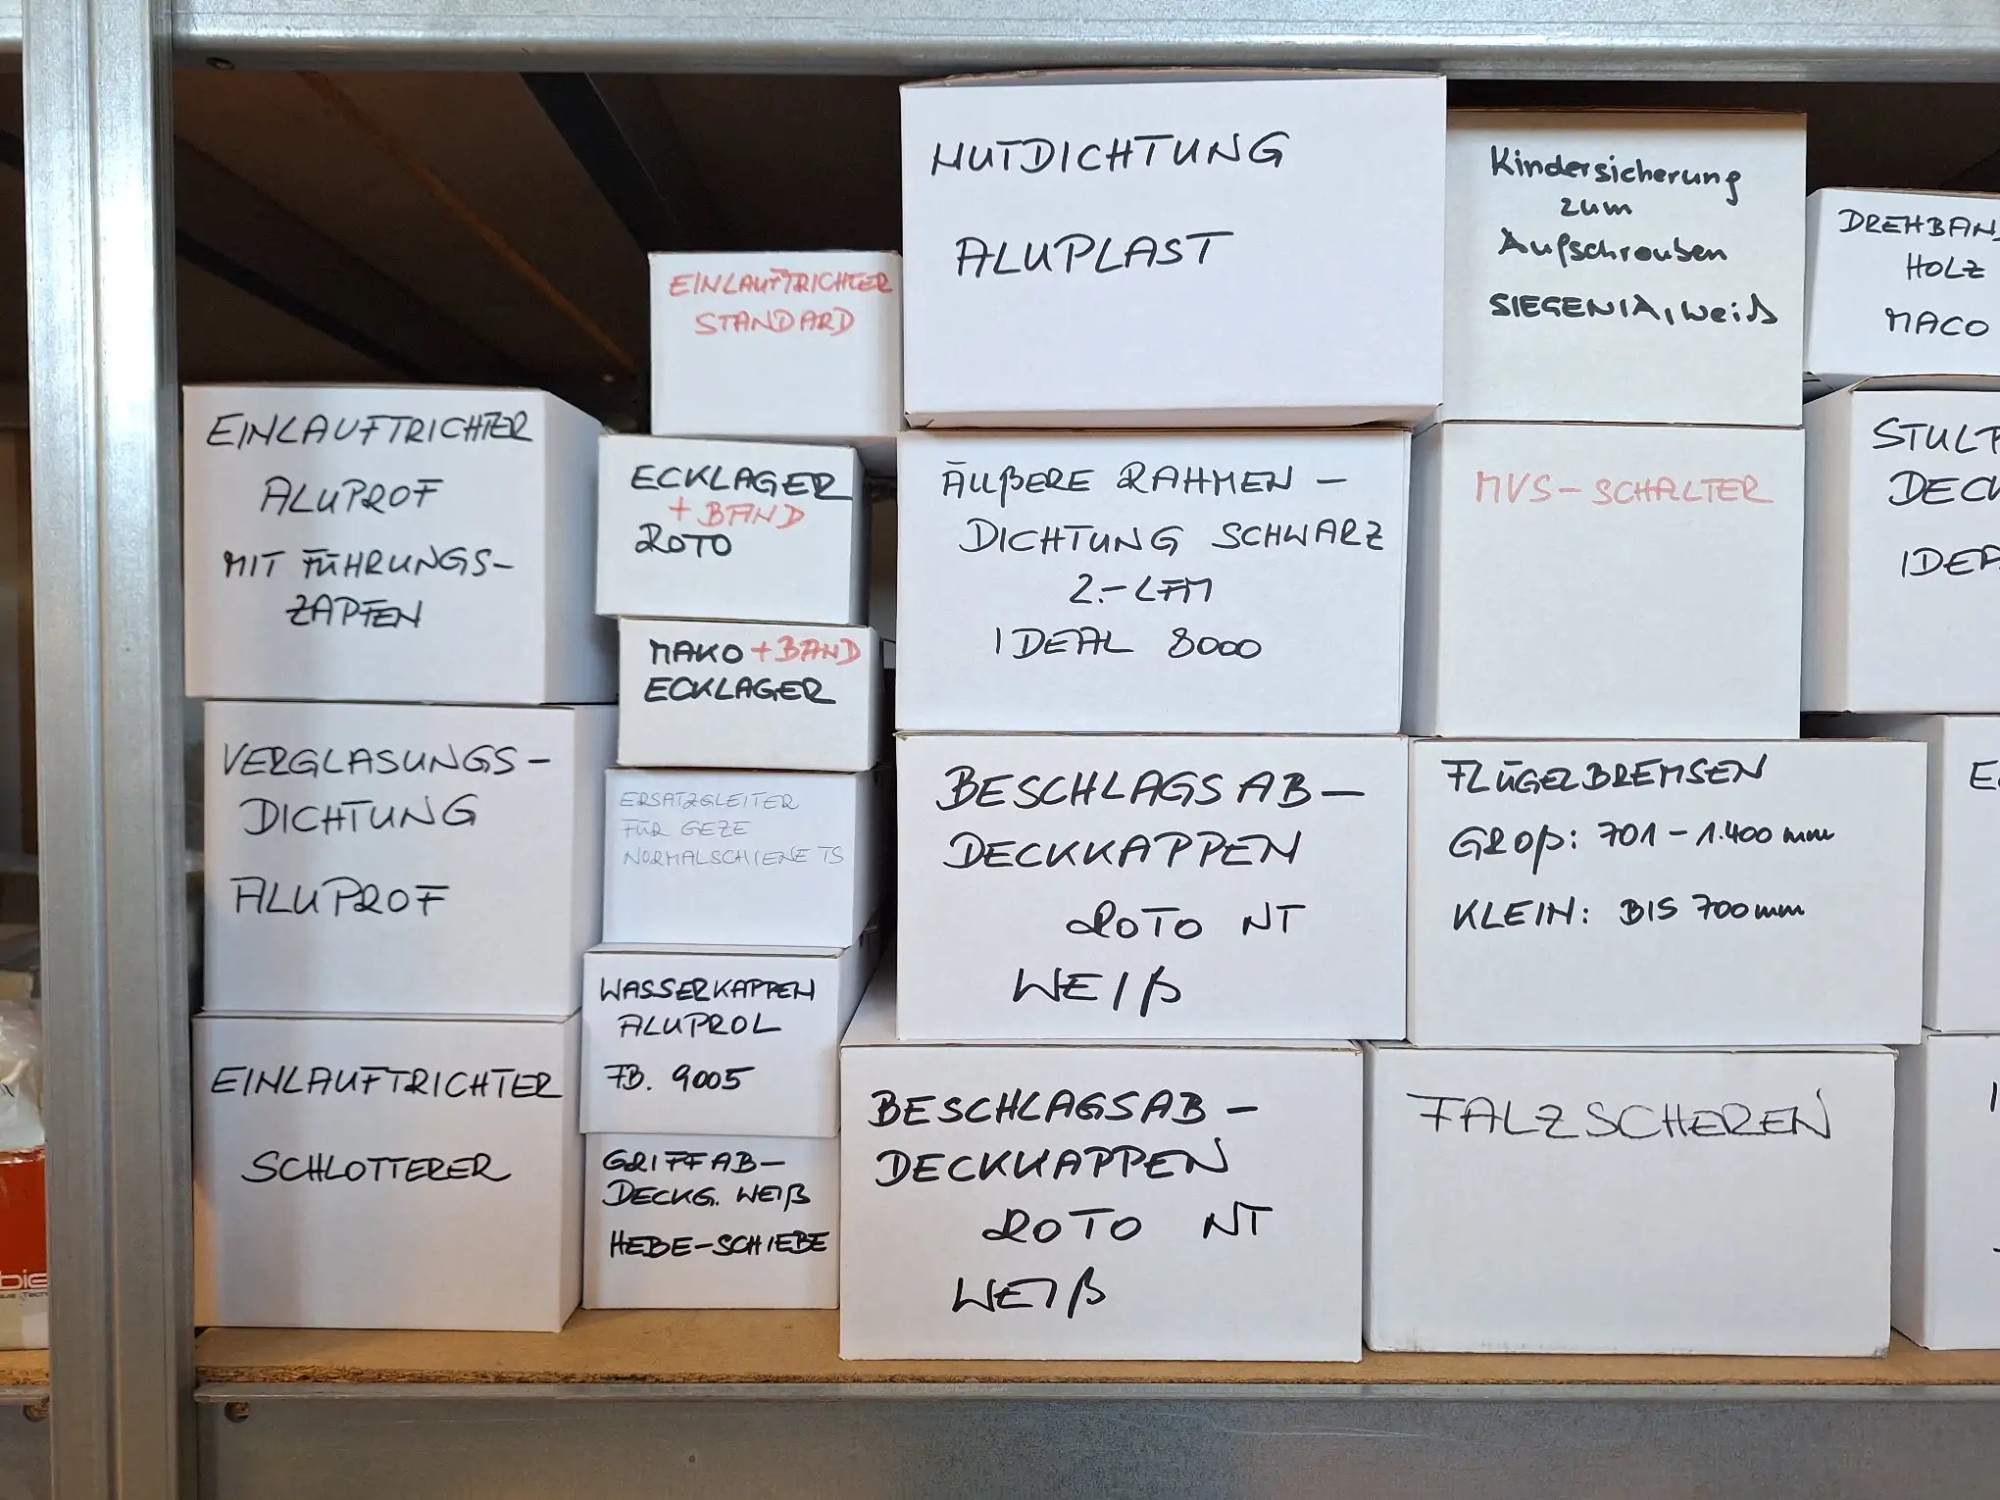 EINLAUFTRICHTER
ALUPROF
MIT FÜHRUNGS-
ZAPFEN
VERGLASUNGS-
DICHTUNG
ALUPROF
EINLAUFTRICHTER
SCHLOTTERER
EINLAUFTRICHTER
STANDARD
ECKLAGER
+ BAND
ROTO
MAKO + BAND
ECKLAGER
ERSATZGLEITER
FÜR GEZE
NORMALSCHIENE TS
WASSERKAPPEN
ALUPROL
FB. 9005
GRIFFAB-
DECKG. WEIß
HEBE-SCHIEBE
NUTDICHTUNG
ALUPLAST
ÄUßERE RAHMEN-
DICHTUNG SCHWARZ
2.-LFM
IDEAL 8000
BESCHLAGSAB-
DECKKAPPEN
ROTO NT
WEIß
BESCHLAGSAB-
DECKKAPPEN
ROTO NT
WEIß
Kindersicherung
zum
Aufschrauben
SIEGENIA, weiß
MVS-SCHALTER
FLÜGELBREMSEN
GROß: 701-1.400 mm
KLEIN: BIS 700 mm
FALZSCHEREN
DREHBAN
HOLZ
MACO
STULP
DECK
IDEA